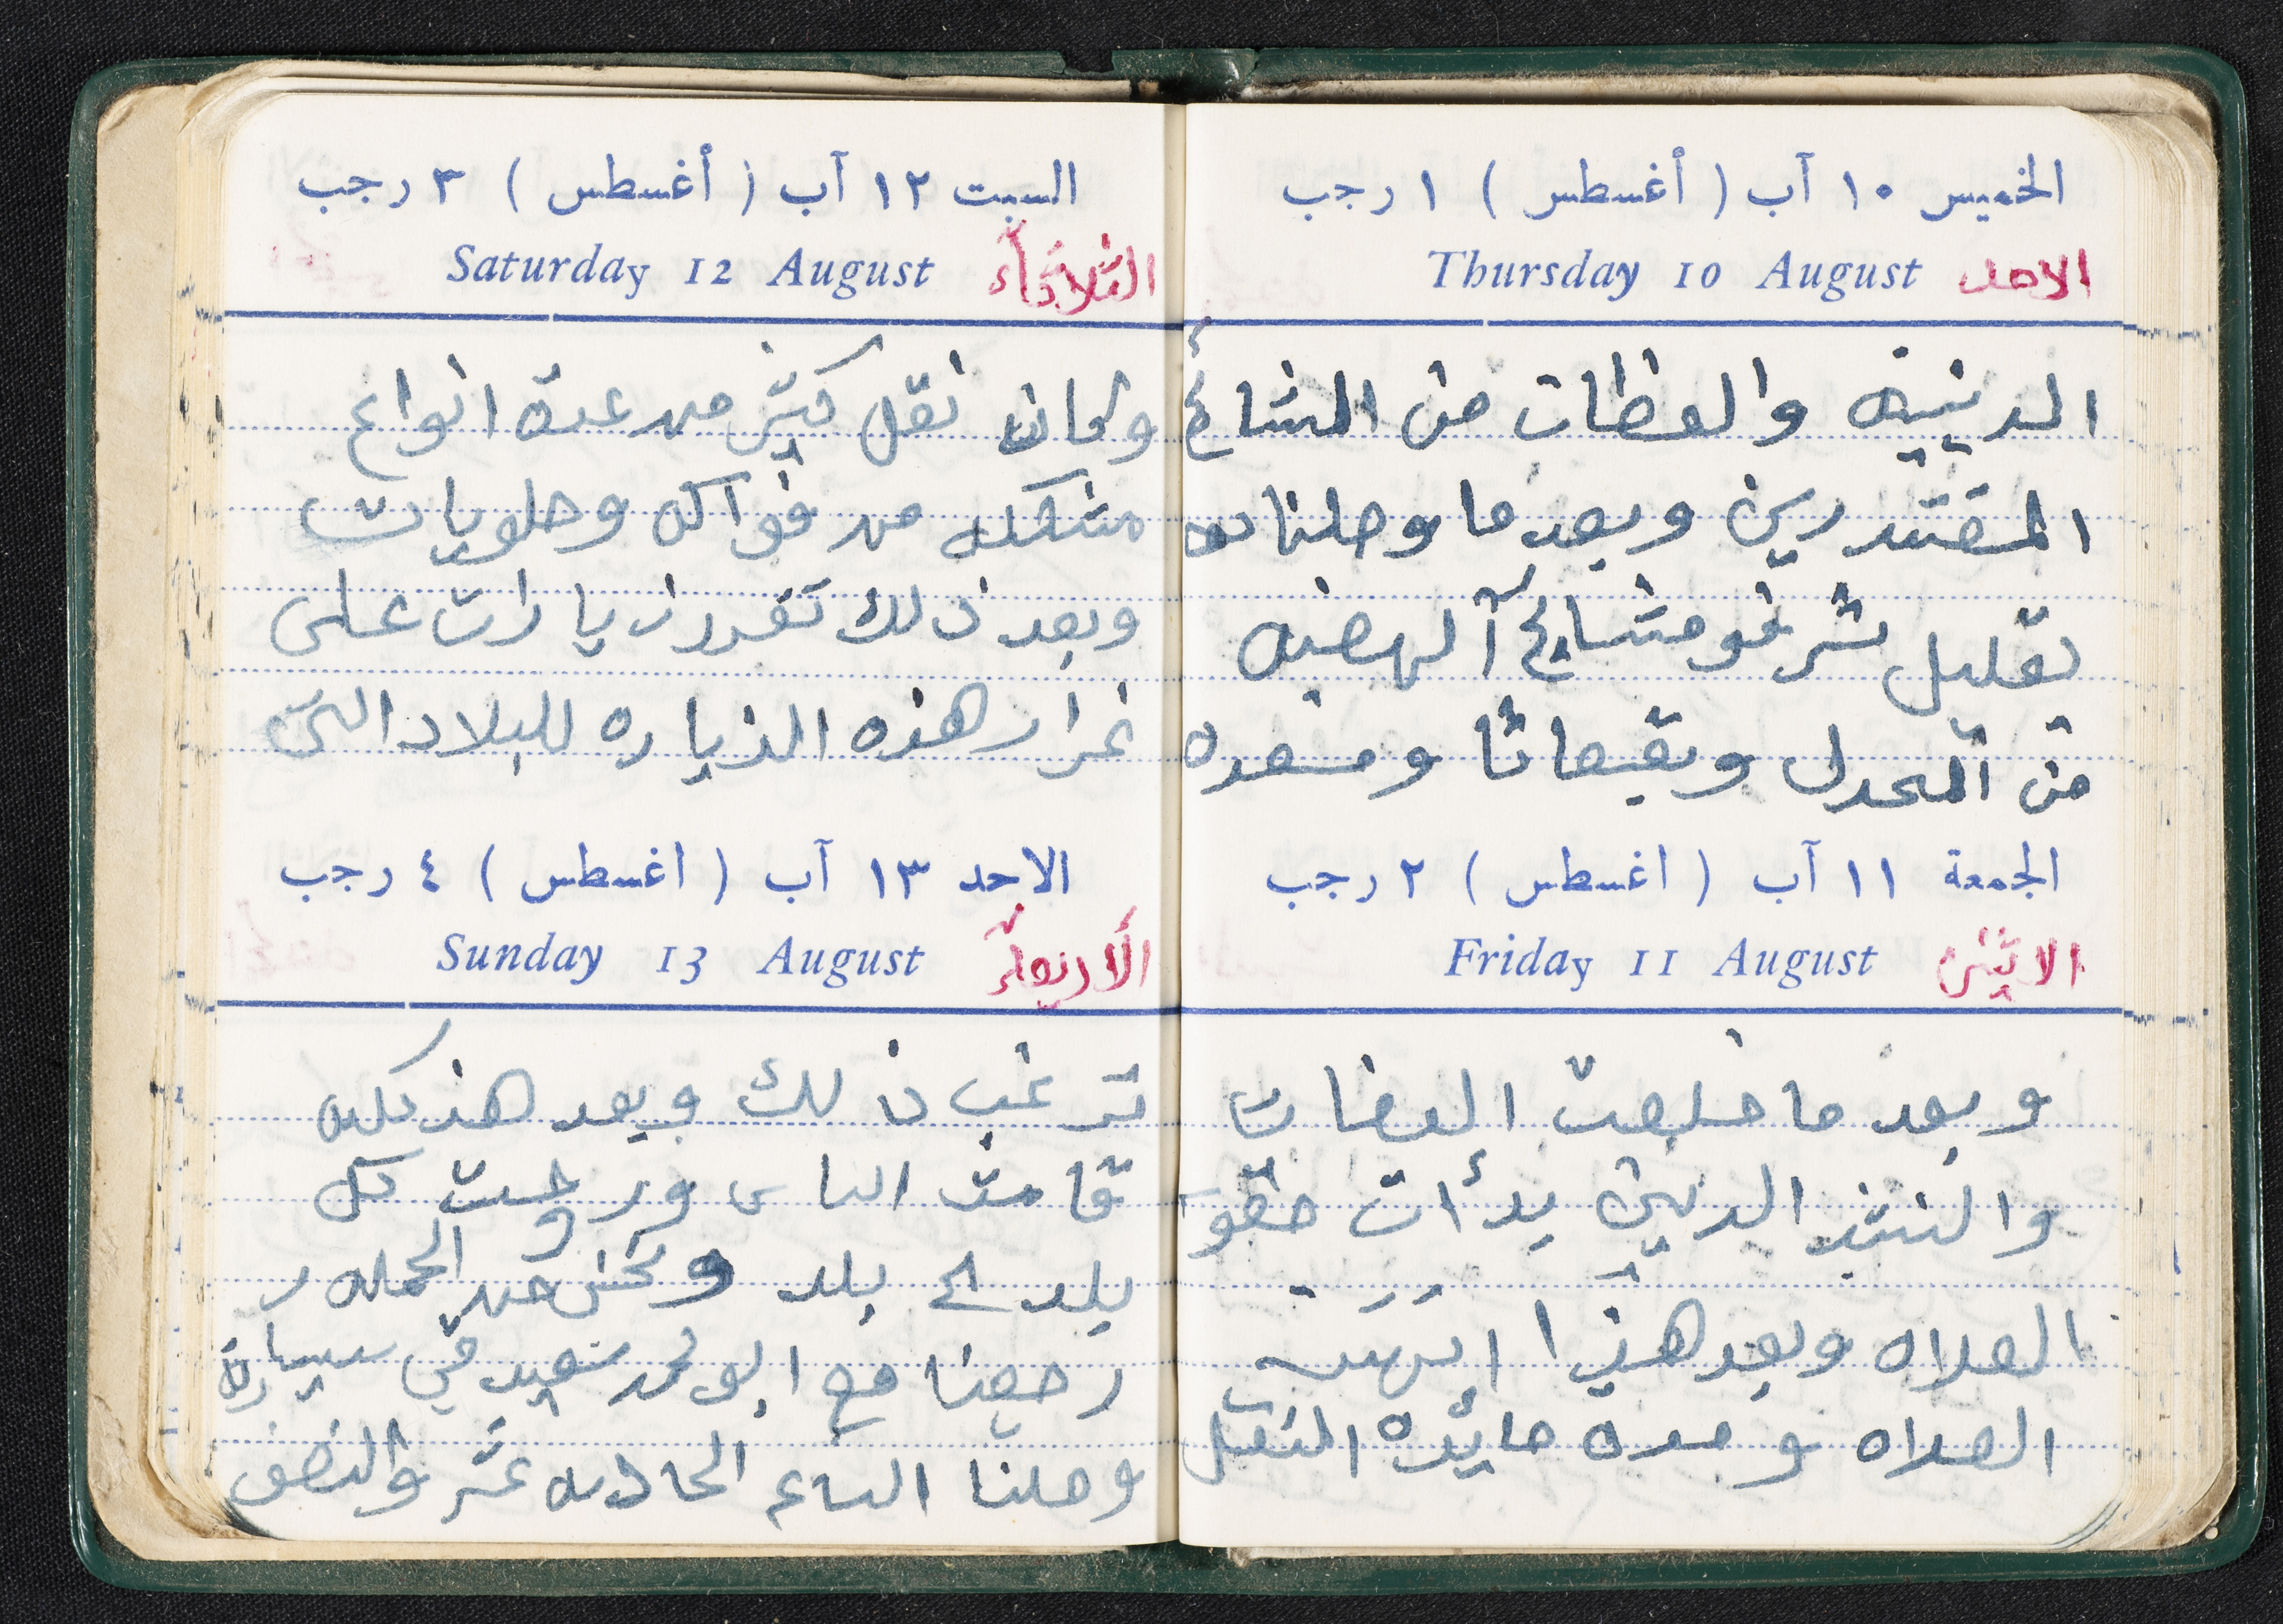 الخميس ١٠ آب ( أغسطس ) ١ رجب
الاحد Thursday 10 August
الدينيه والعظات من المشائخ
المقتدرين وبعد ما وصلنا
بقليل شرفو مشايخ الهضبه
من المجدل وبقيعاثا ومسعده
الجمعة ١١ آب ( اغسطس ) ٢ رجب
الاثنين Friday 11 August
وبعد ما خلصت العضات
والنشد الديني بدأت
الصلاه وبعد هذا انتهت
الصلاه ومده مائده النقل
السبت ١٢ آب ( أغسطس ) ٣ رجب
الثلاثاء Saturday 12 August
وكان نقل كثير من عدة انواع
مشكله من فواكه وحلويات
وبعد ذلك تقرر زيارات على
غرار هذه الزياره للبلاد التي
الاحد ١٣ آب ( اغسطس ) ٤ رجب
الأربعاء Sunday 13 August
ترغب ذلك وبعد هذ كله
قامت الناس وروحت كل
بلد بلد ونحن من الجمله ر
رجعنا مع ابو محمد سعيد في سيارة
وصلنا الساع الحاديه عشر والنصف